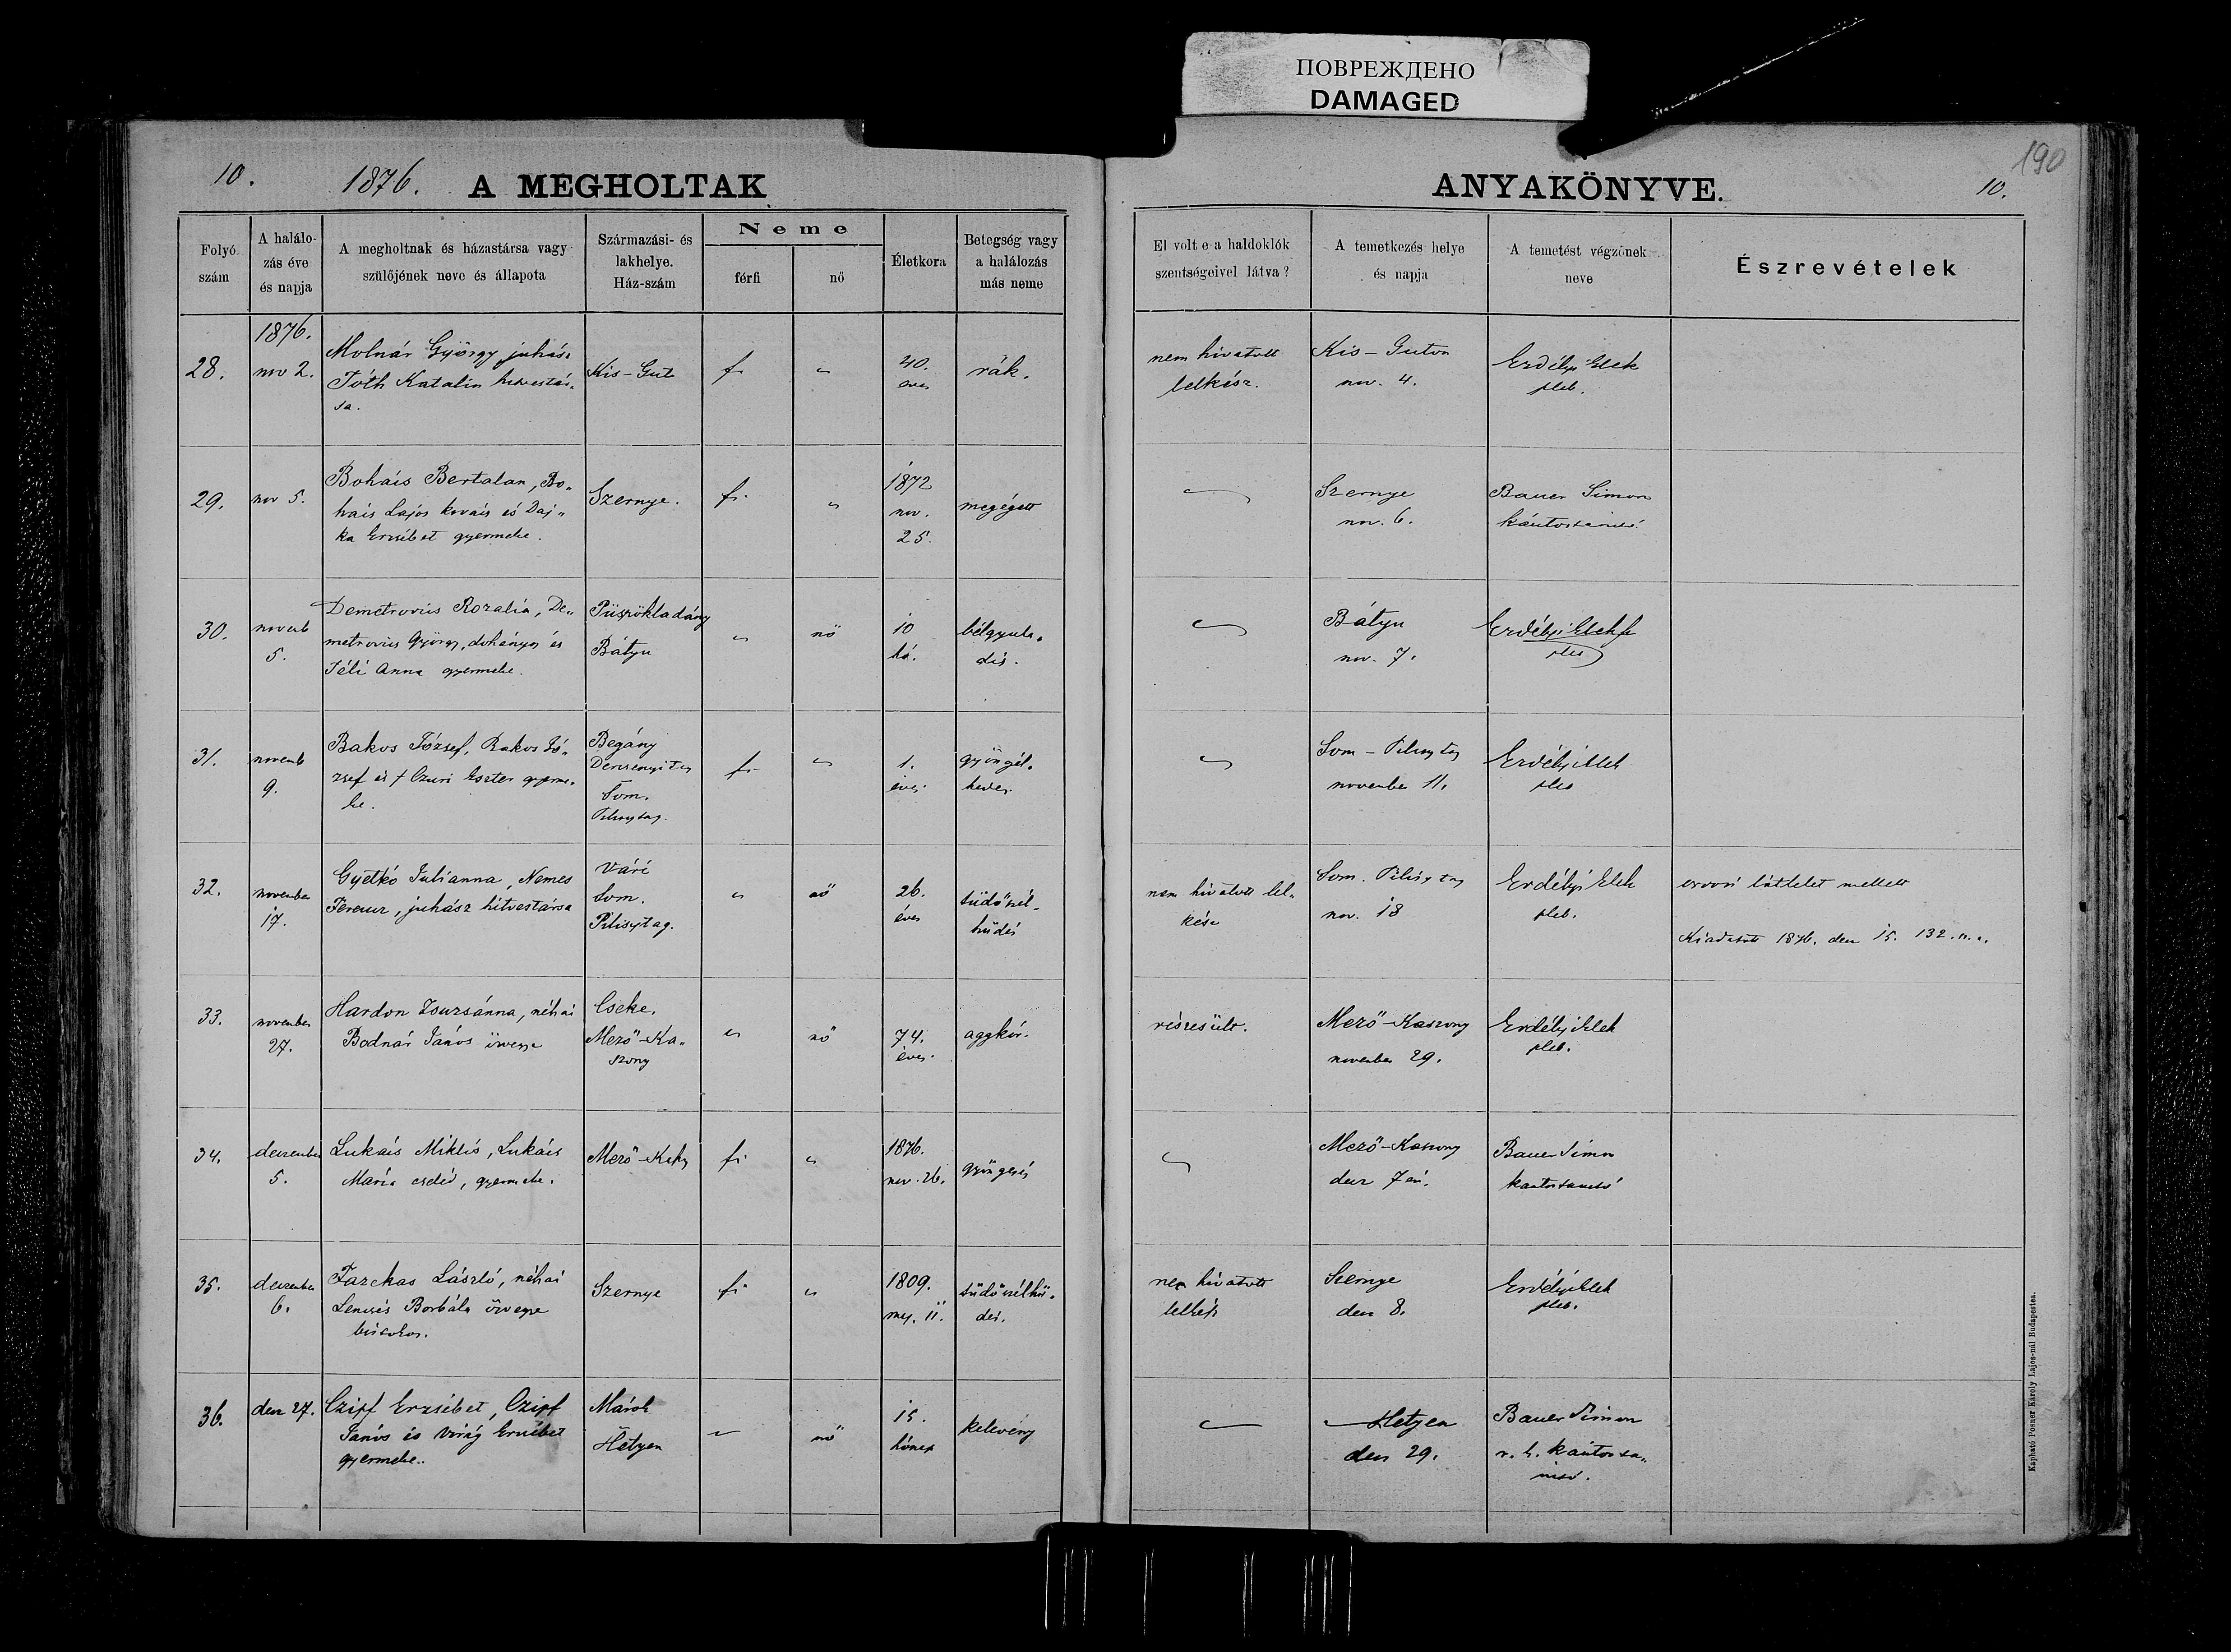 ПОВРЕЖДЕНО
DAMAGED
190
10.
1876.
A MEGHOLTAK
ANYAKÖNYVE.
10.
Folyó szám
A halálo-
zás éve
és napja
A megholtnak és házastársa vagy
szülőjének neve és állapota
Származási- és
lakhelye.
Ház-szám
Neme
férfi
nő
Életkora
Betegség vagy
a halálozás
más neme
El volt e a haldoklók
szentségeivel látva?
A temetkezés helye
és napja
A temetést végzőnek
neve
Észrevételek
28.
1876.
nov 2.
Molnár György juhász
Tóth Katalin hitvestár-
sa.
Kis-Gut
fi
"
40.
éves
rák.
nem hivatott
lelkész.
Kis-Guton
nov. 4.
Erdélyi Elek
pleb.
29.
nov 5.
Boháis Bertalan, Bo-
háis Lajos kováis és Daj-
ka Erzsébet gyermeke.
Szernye.
fi
"
1872
nov.
25.
megégett
Szernye
nov. 6.
Bauer Simon
kántortanító
30.
novemb
5.
Demetrovics Rozalia, De-
metrovics György, dohányos és
Téli Anna gyermeke.
Püspökladány
Bátyu
"
nő
10
hó.
bélgyula-
dás.
Bátyu
nov. 7.
Erdélyi Elek
pleb
31.
novemb
9.
Bakos József, Bakos Jó-
zsef és † Czuri Eszter gyerme-
ke.
Begány
Som.
fi
"
1.
éves
gyöngél-
kedés
Som - Pilisytag
november 11.
Erdélyi Elek
pleb
32.
november
17.
Gyetkó Julianna, Nemes
Ferencz, juhász hitvestársa
Vári
Som.
Pilisytag.
"
nő
26.
éves
tüdőszél-
hüdés
nem hivatott lel-
kész
Som. Pilisytag
nov. 18
Erdélyi Elek
pleb.
orvosi láttelet mellett
Kiadatott 1876. dec 15. 132.
33.
november
27.
Hardon Zsuzsánna, néhai
Bodnár János özvegye
Cseke.
Mező-Ka-
szony
"
nő
74.
éves.
aggkór.
részesült.
Mező-Kaszony
november 29.
Erdélyi Elek
pleb.
34.
deczember
5.
Lukáis Miklós, Lukáis
Mária cseléd, gyermeke.
fi
"
1876.
nov. 26.
gyöngeség
Mező-Kaszony
decz 7én.
Bauer Simon
kántortanító
35.
deczember
6.
Fazekas László, néhai
Lencsés Borbála özvegye
birtokos.
Szernye
fi
"
1809.
máj. 11.
tüdőszélhü-
dés.
nem hivatott
lelkész
Szernye
dec 8.
Erdélyi Elek
pleb.
36.
dec 27.
Czipf Erzsébet, Czipf
János és Virág Erzsébet
gyermeke..
Márok
Hetyen
nő
15.
hónap
kelevény
Hetyen
dec 29.
Bauer Simon
r. k. kántorta-
nitó.
Kapható Posner Károly Lajos-nál Budapesten.